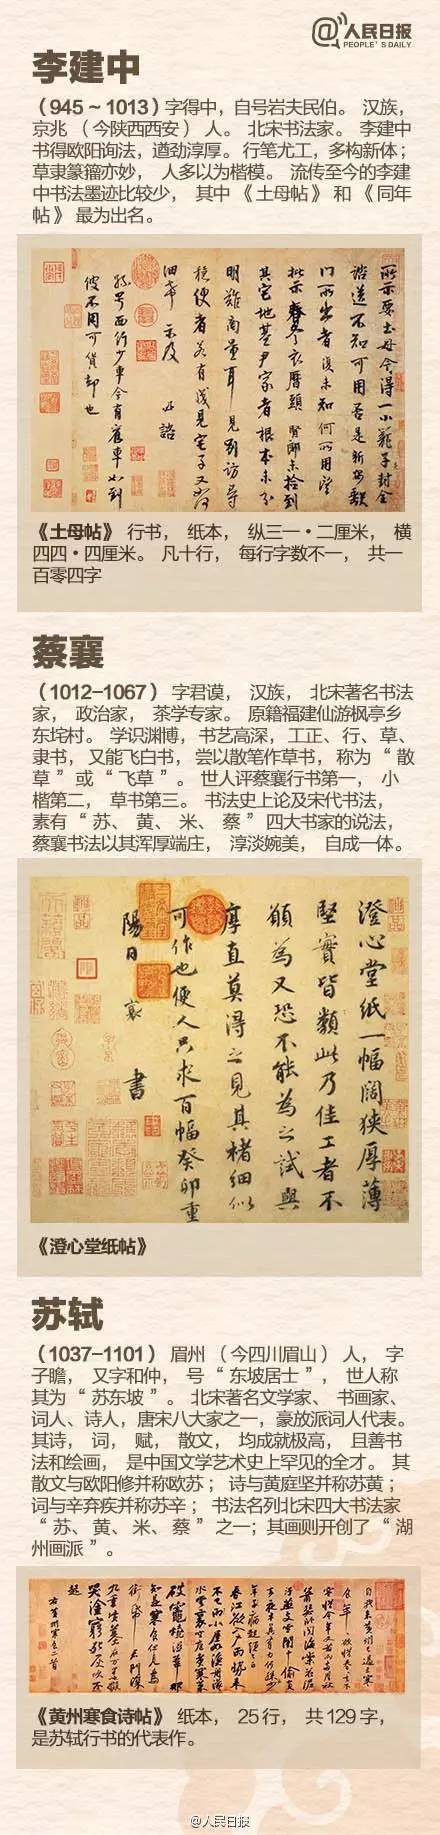 @人民日报
PEOPLE'S DAILY
李建中
（945～1013）字得中，自号岩夫民伯。 汉族，
京兆 （今陕西西安） 人。 北宋书法家。 李建中
书得欧阳询法，遒劲淳厚。 行笔尤工，多构新体；
草隶篆籀亦妙， 人多以为楷模。 流传至今的李建
中书法墨迹比较少， 其中 《土母帖》 和 《同年
帖》 最为出名。
所示要土母今得一小笼子封全
咨送不知可用否是新安缺
门所出者复未知何所用望
批示春冬衣历头贤郎未检到
其宅地基尹家者根本未分
明难商量耳见别访寻
稳便者若有成见宅子又如何
细希示及
孙号西行少车今有旧车如到
彼不用可货却也
《土母帖》 行书， 纸本， 纵三一·二厘米， 横
四四·四厘米。 凡十行， 每行字数不一， 共一
百零四字
蔡襄
（1012-1067） 字君谟， 汉族， 北宋著名书法
家， 政治家， 茶学专家。 原籍福建仙游枫亭乡
东垞村。 学识渊博，书艺高深，工正、行、草、
隶书， 又能飞白书， 尝以散笔作草书， 称为 “散
草 ” 或 “飞草 ” 。 世人评蔡襄行书第一， 小
楷第二， 草书第三。 书法史上论及宋代书法，
素有 “苏、 黄、 米、 蔡 ” 四大书家的说法，
蔡襄书法以其浑厚端庄， 淳淡婉美， 自成一体。
澄心堂紙一幅闊狹厚薄
堅實皆類此乃佳工者不
願為又恐不能為之試與
厚直莫得之見其楮細似
可作也便人只求百幅癸卯重
陽日襄書
《澄心堂纸帖》
苏轼
（1037-1101） 眉州 （今四川眉山） 人， 字
子瞻， 又字和仲， 号 “东坡居士 ” ， 世人称
其为 “苏东坡 ” 。 北宋著名文学家、 书画家、
词人、诗人，唐宋八大家之一，豪放派词人代表。
其诗， 词， 赋， 散文， 均成就极高， 且善书
法和绘画， 是中国文学艺术史上罕见的全才。 其
散文与欧阳修并称欧苏； 诗与黄庭坚并称苏黄；
词与辛弃疾并称苏辛； 书法名列北宋四大书法家
“苏、 黄、 米、 蔡 ” 之一；其画则开创了 “湖
州画派 ” 。
《黄州寒食诗帖》 纸本， 25行， 共129字，
是苏轼行书的代表作。
@人民日报